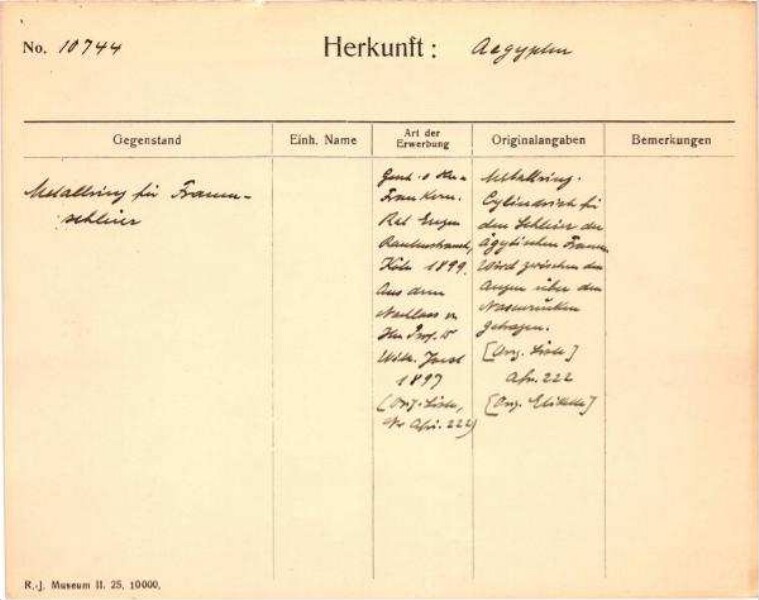 No. 10744
Herkunft: Aegypten
Gegenstand
Einh. Name
Art der Erwerbung
Originalangaben
Bemerkungen
Metallring für Frauen-
schleier
Frau Kom.
Rat Eugen
Rautenstrauch,
Köln 1899.
Aus dem
Nachlass v.
Hn Prof. Dr
Wilh. Joest
1897
(Orig. Liste,
Nr Afr. 222)
Metallring.
Cylindrisch für
den Schleier der
ägytischen Frauen.
Wird zwischen den
Augen über den
Nasenrücken
getragen.
[Orig. Liste]
Afr. 222
[Orig. Etikette]
R.-J. Museum II. 25. 10000.